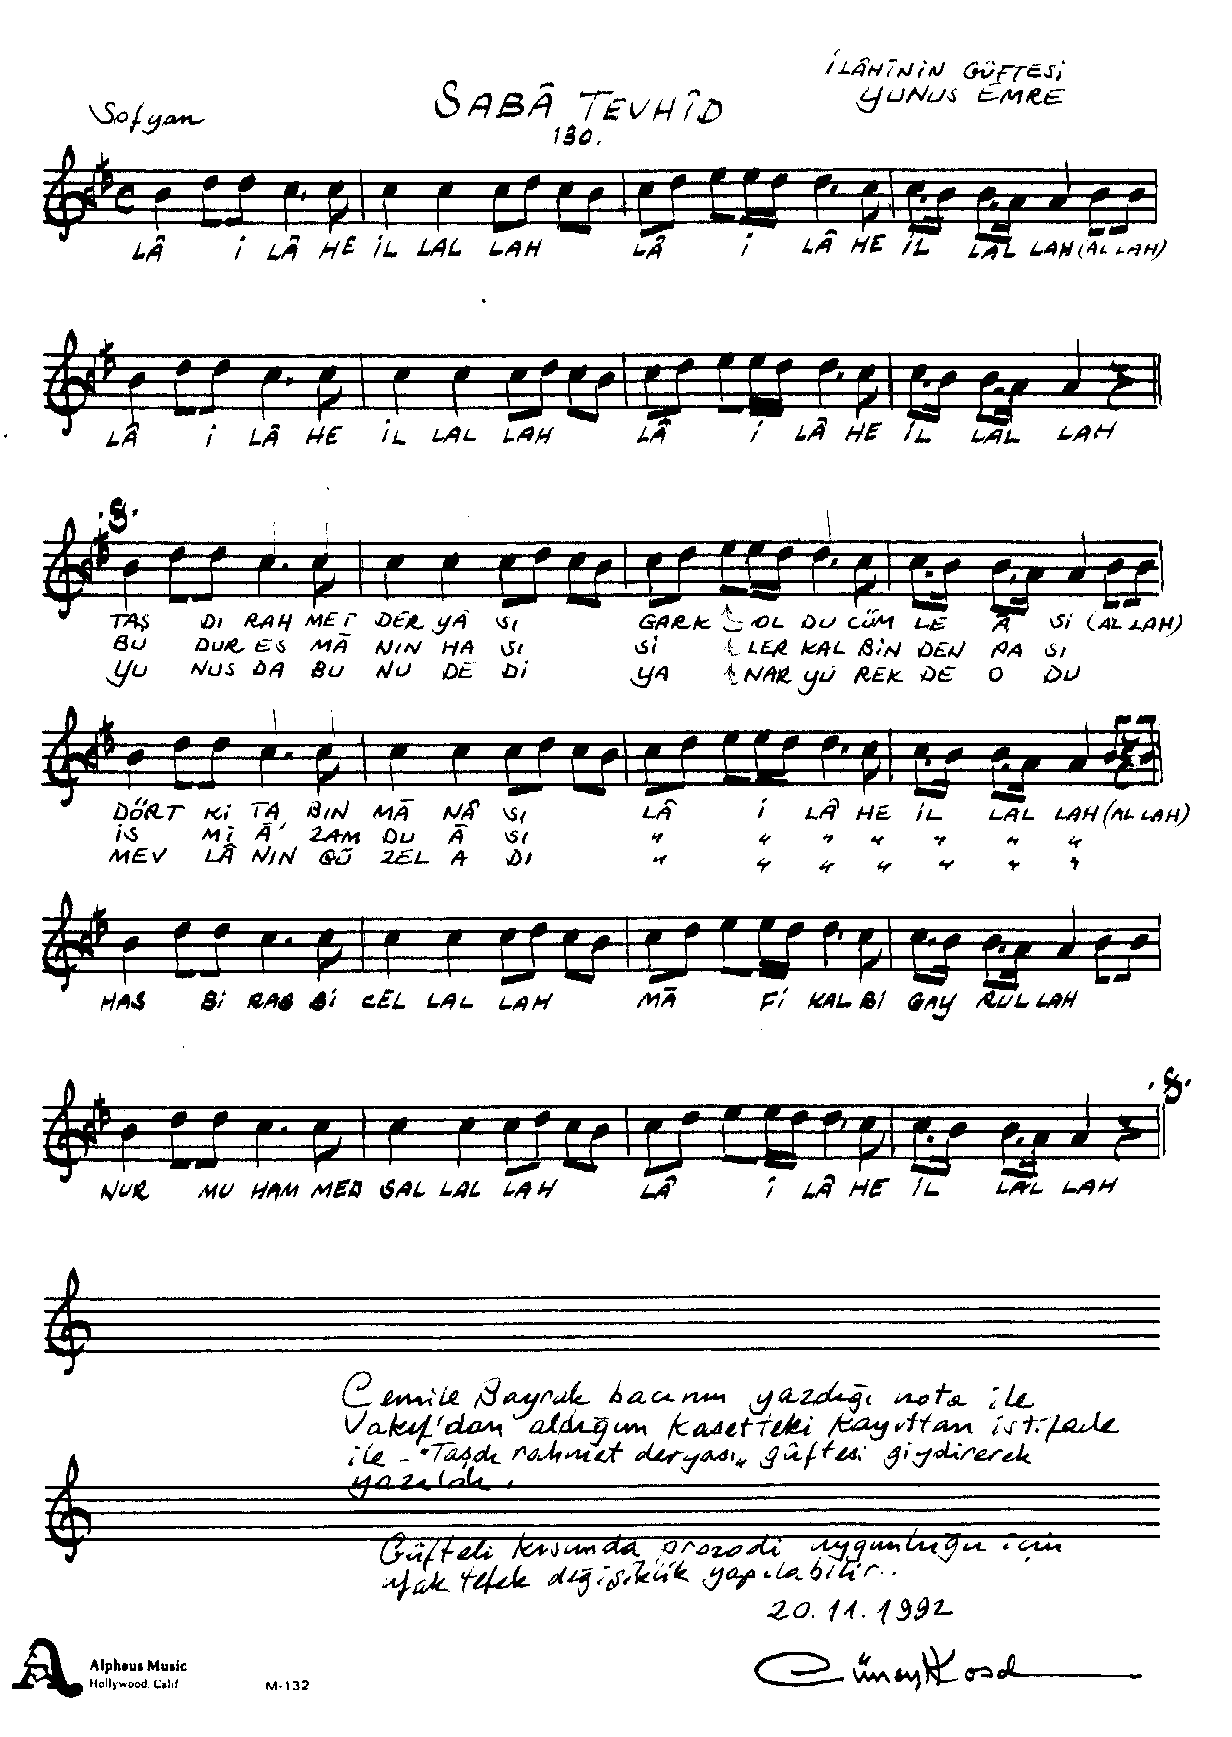 İLÂHÎNİN GÜFTESİ
Sofyan SABÂ TEVHÎD YUNUS EMRE
130.
LÂ İ LÂ HE İL LAL LAH LÂ İ LÂ HE İL LAL LAH (AL LAH)
LÂ İ LÂ HE İL LAL LAH LÂ İ LÂ HE İL LAL LAH
TAŞ DI RAH MET DER YÂ SI GARK OL DU CÜM LE Â Sİ (AL LAH)
BU DUR ES MÂ NIN HA SI Sİ LER KAL BİN DEN PA SI
YU NUS DA BU NU DE Dİ YA NAR YÜ REK DE O DU
DÖRT Kİ TA BIN MÂ NÂ SI LÂ İ LÂ HE İL LAL LAH (AL LAH)
İS Mİ Â' ZAM DU Â SI " " " " " " "
MEV LÂ NIN GÜ ZEL A DI " " " " " " "
HAS Bİ RAB Bİ CEL LAL LAH MÂ Fİ KAL Bİ GAY RUL LAH
NUR MU HAM MED SAL LAL LAH LÂ İ LÂ HE İL LAL LAH
Cemile Bayrak bacının yazdığı nota ile
Vakıf'dan aldığım kasetteki kayıttan istifade
ile - "Taşdı rahmet deryası" güftesi giydirerek
yazıldı.
Güfteli kısımda prozodi uygunluğu için
ufak tefek değişiklik yapılabilir..
20.11.1992
Alpheus Music
Hollywood, Calif M-132